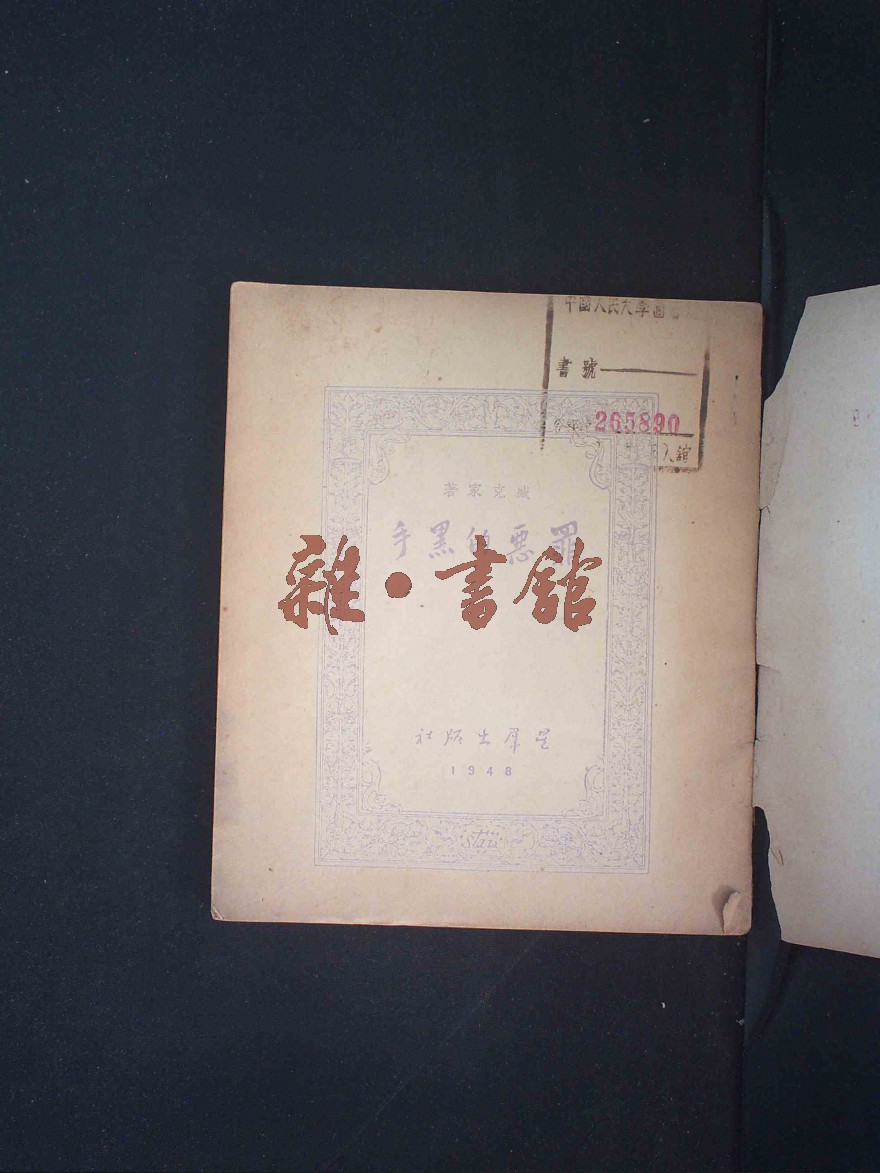 中國人民大學圖書
書號
265890
入館
臧克家著
罪惡的黑手
雜·書舘
星羣出版社
1948
stars